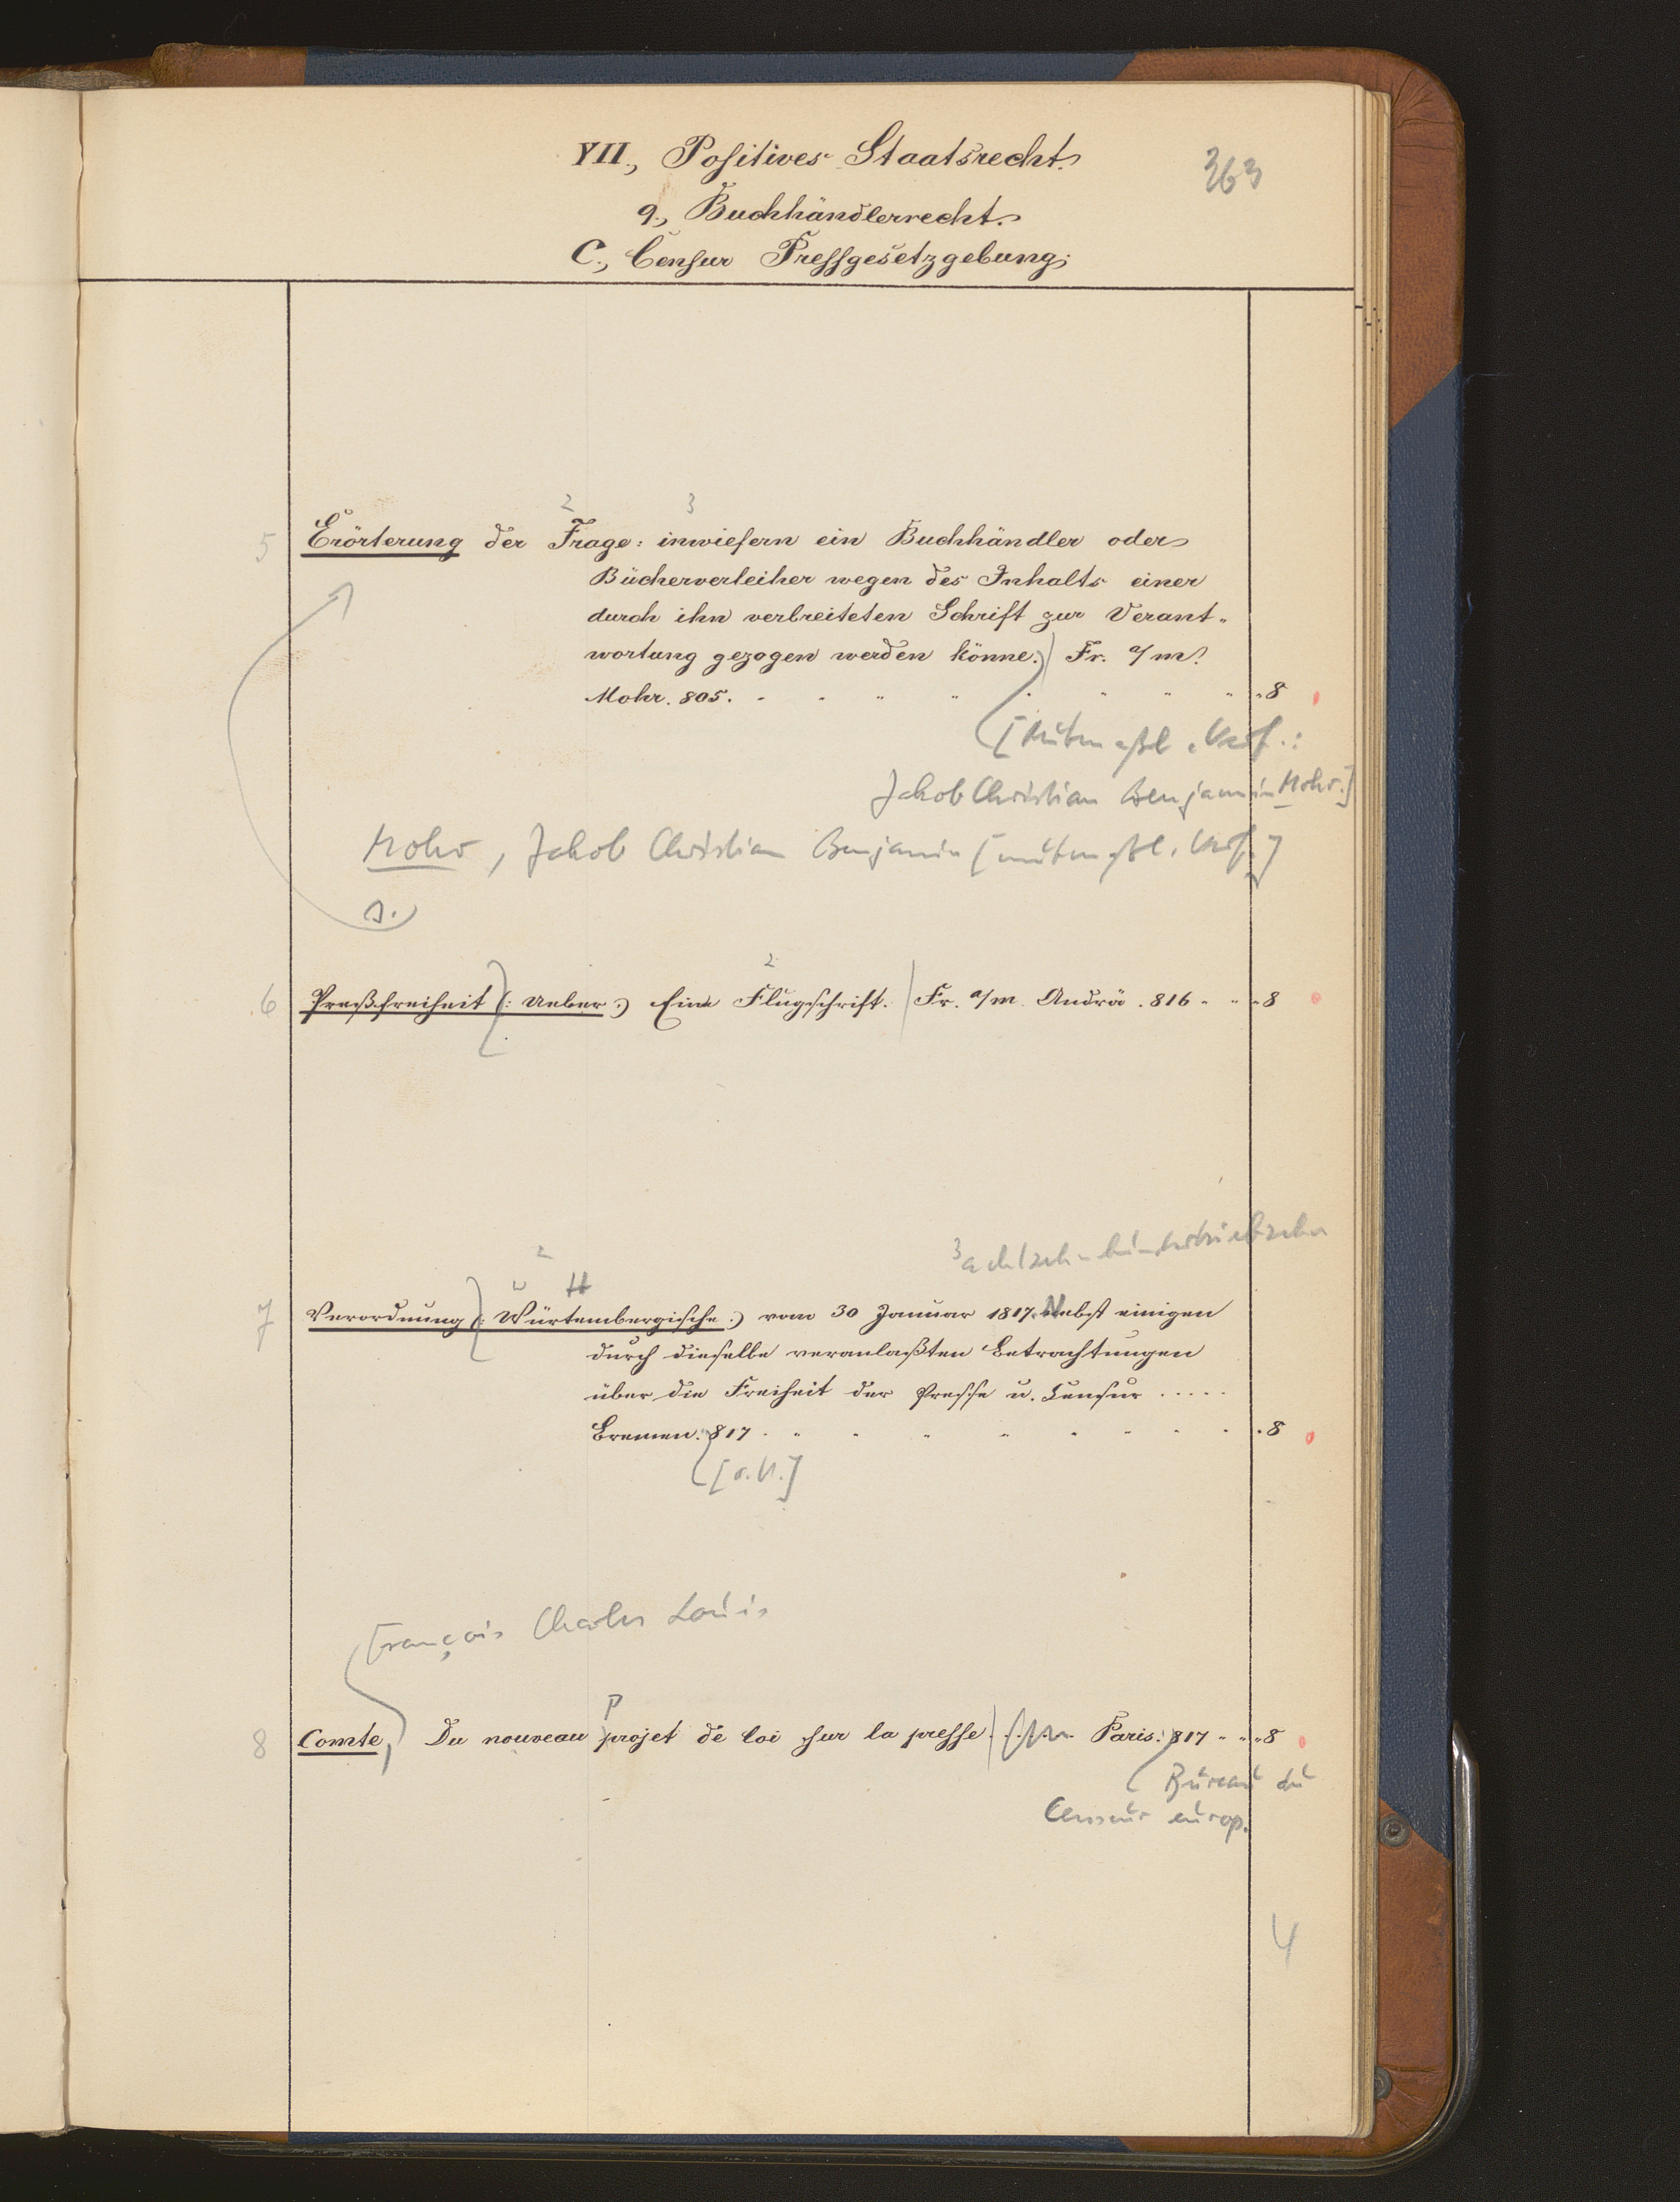 VII., Positives Staatsrecht.
363
9., Buchhändlerrecht.
C., Censur Pressgesetzgebung;
2 3
5 Erörterung der Frage: inwiefern ein Buchhändler oder
Bücherverleiher wegen des Inhalts einer
durch ihn verbreiteten Schrift zur Verant-
wortung gezogen werden könne. Fr. a/m.
Mohr. 805. 8
[mutmaßl. Verf.:
Jakob Christian Benjamin Mohr.]
Mohr, Jakob Christian Benjamin [mutmaßl. Verf.]
s.
2
6 Preßfreiheit (: Ueber :) Eine Flugschrift. Fr. a/m. Andrä. 816 8
3 achtzehnhundertsiebzehn
2
u tt
7 Verordnung (: Würtembergische :) vom 30 Januar 1817. Nebst einigen
durch dieselbe veranlaßten Betrachtungen
über die Freiheit der Presse u. Censur .....
Bremen. 817 8
[o.V.]
François Charles Louis
P
8 Comte, Du nouveau projet de loi sur la presse. Paris. 817 8
Bureau du
Censeur europ.
4